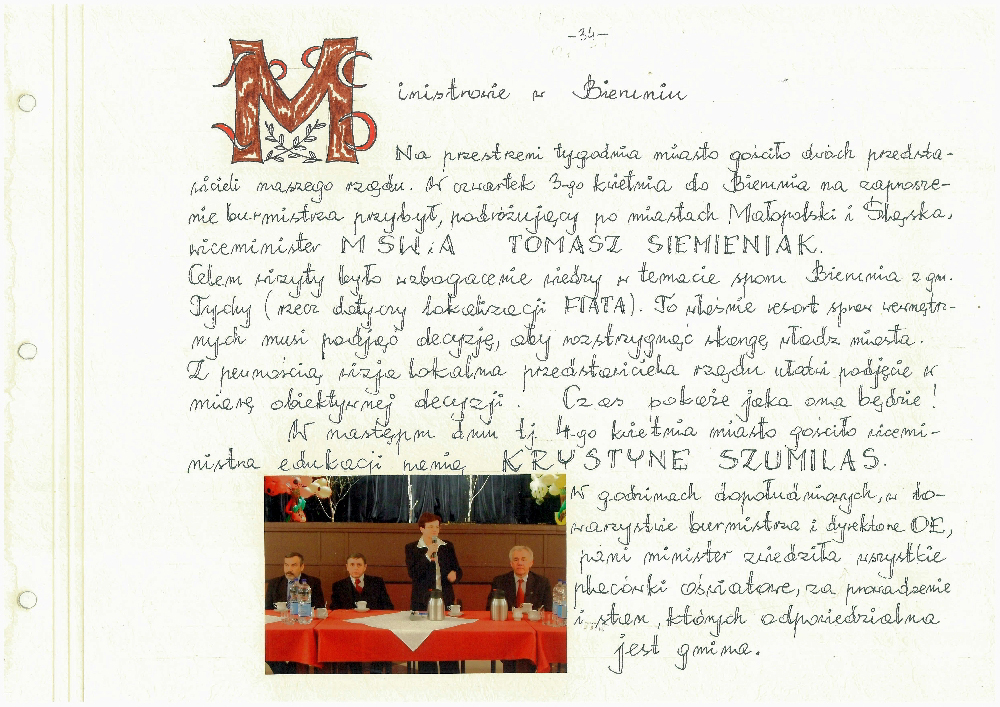 -34-
Ministrowie w Bieruniu
Na przestrzeni tygodnia miasto gościło dwóch przedsta-
wicieli naszego rządu. W czwartek 3-go kwietnia do Bierunia na zaprosze-
nie burmistrza przybył, podróżujący po miastach Małopolski i Śląska,
wiceminister MSWiA TOMASZ SIEMIENIAK.
Celem wizyty było wzbogacenie wiedzy w temacie sporu Bierunia z gm.
Tychy (rzecz dotyczy lokalizacji FIATA). To właśnie resort spraw wewnętrz-
nych musi podjąć decyzję, aby rozstrzygnąć skargę władz miasta.
Z pewnością wizja lokalna przedstawiciela rządu ułatwi podjęcie w
miarę obiektywnej decyzji. Czas pokaże jaka ona będzie!
W następnym dniu tj 4-go kwietnia miasto gościło wicemi-
nistra edukacji panią KRYSTYNE SZUMILAS.
W godzinach dopołudniowych, w to-
warzystwie burmistrza i dyrektora OE,
pani minister zwiedziła wszystkie
placówki oświatowe, za prowadzenie
i stan, których odpowiedzialna
jest gmina.